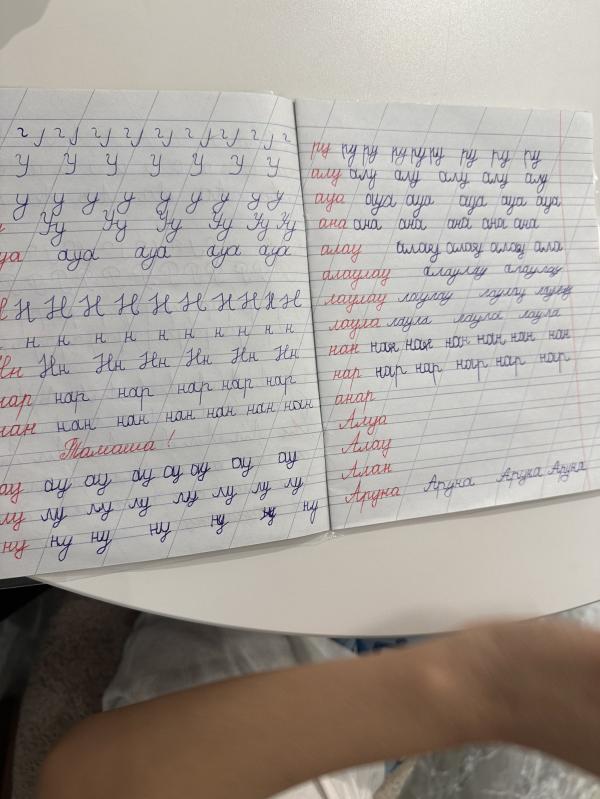 У У У У У У У
у у у у у у у у у
Уу Уу Уу Уу Уу Уу
ауа ауа ауа ауа
Н Н Н Н Н Н Н Н Н Н
н н н н н н н н н
Нн Нн Нн Нн Нн Нн
нар нар нар нар нар нар
нан нан нан нан нан нан нан
Тамаша!
ау ау ау ау ау ау ау ау
лу лу лу лу лу лу лу лу
ну ну ну ну ну ну
ру ру ру ру ру ру ру ру ру
алу алу алу алу алу алу
ауа ауа ауа ауа ауа ауа
ана ана ана ана ана ана
алау алау алау алау ала
алаулау алаулау алаулау
лаулау лаулау лаулау лаулау
лаула лаула лаула лаула
нан нан нан нан нан нан нан
нар нар нар нар нар нар
анар
Алуа
Алау
Алан
Аруна Аруна Аруна Аруна